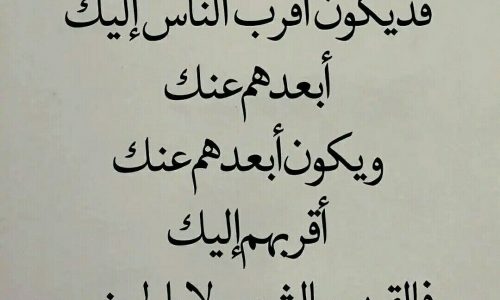 قد يكون أقرب الناس إليك
أبعدهم عنك
ويكون أبعدهم عنك
أقربهم إليك